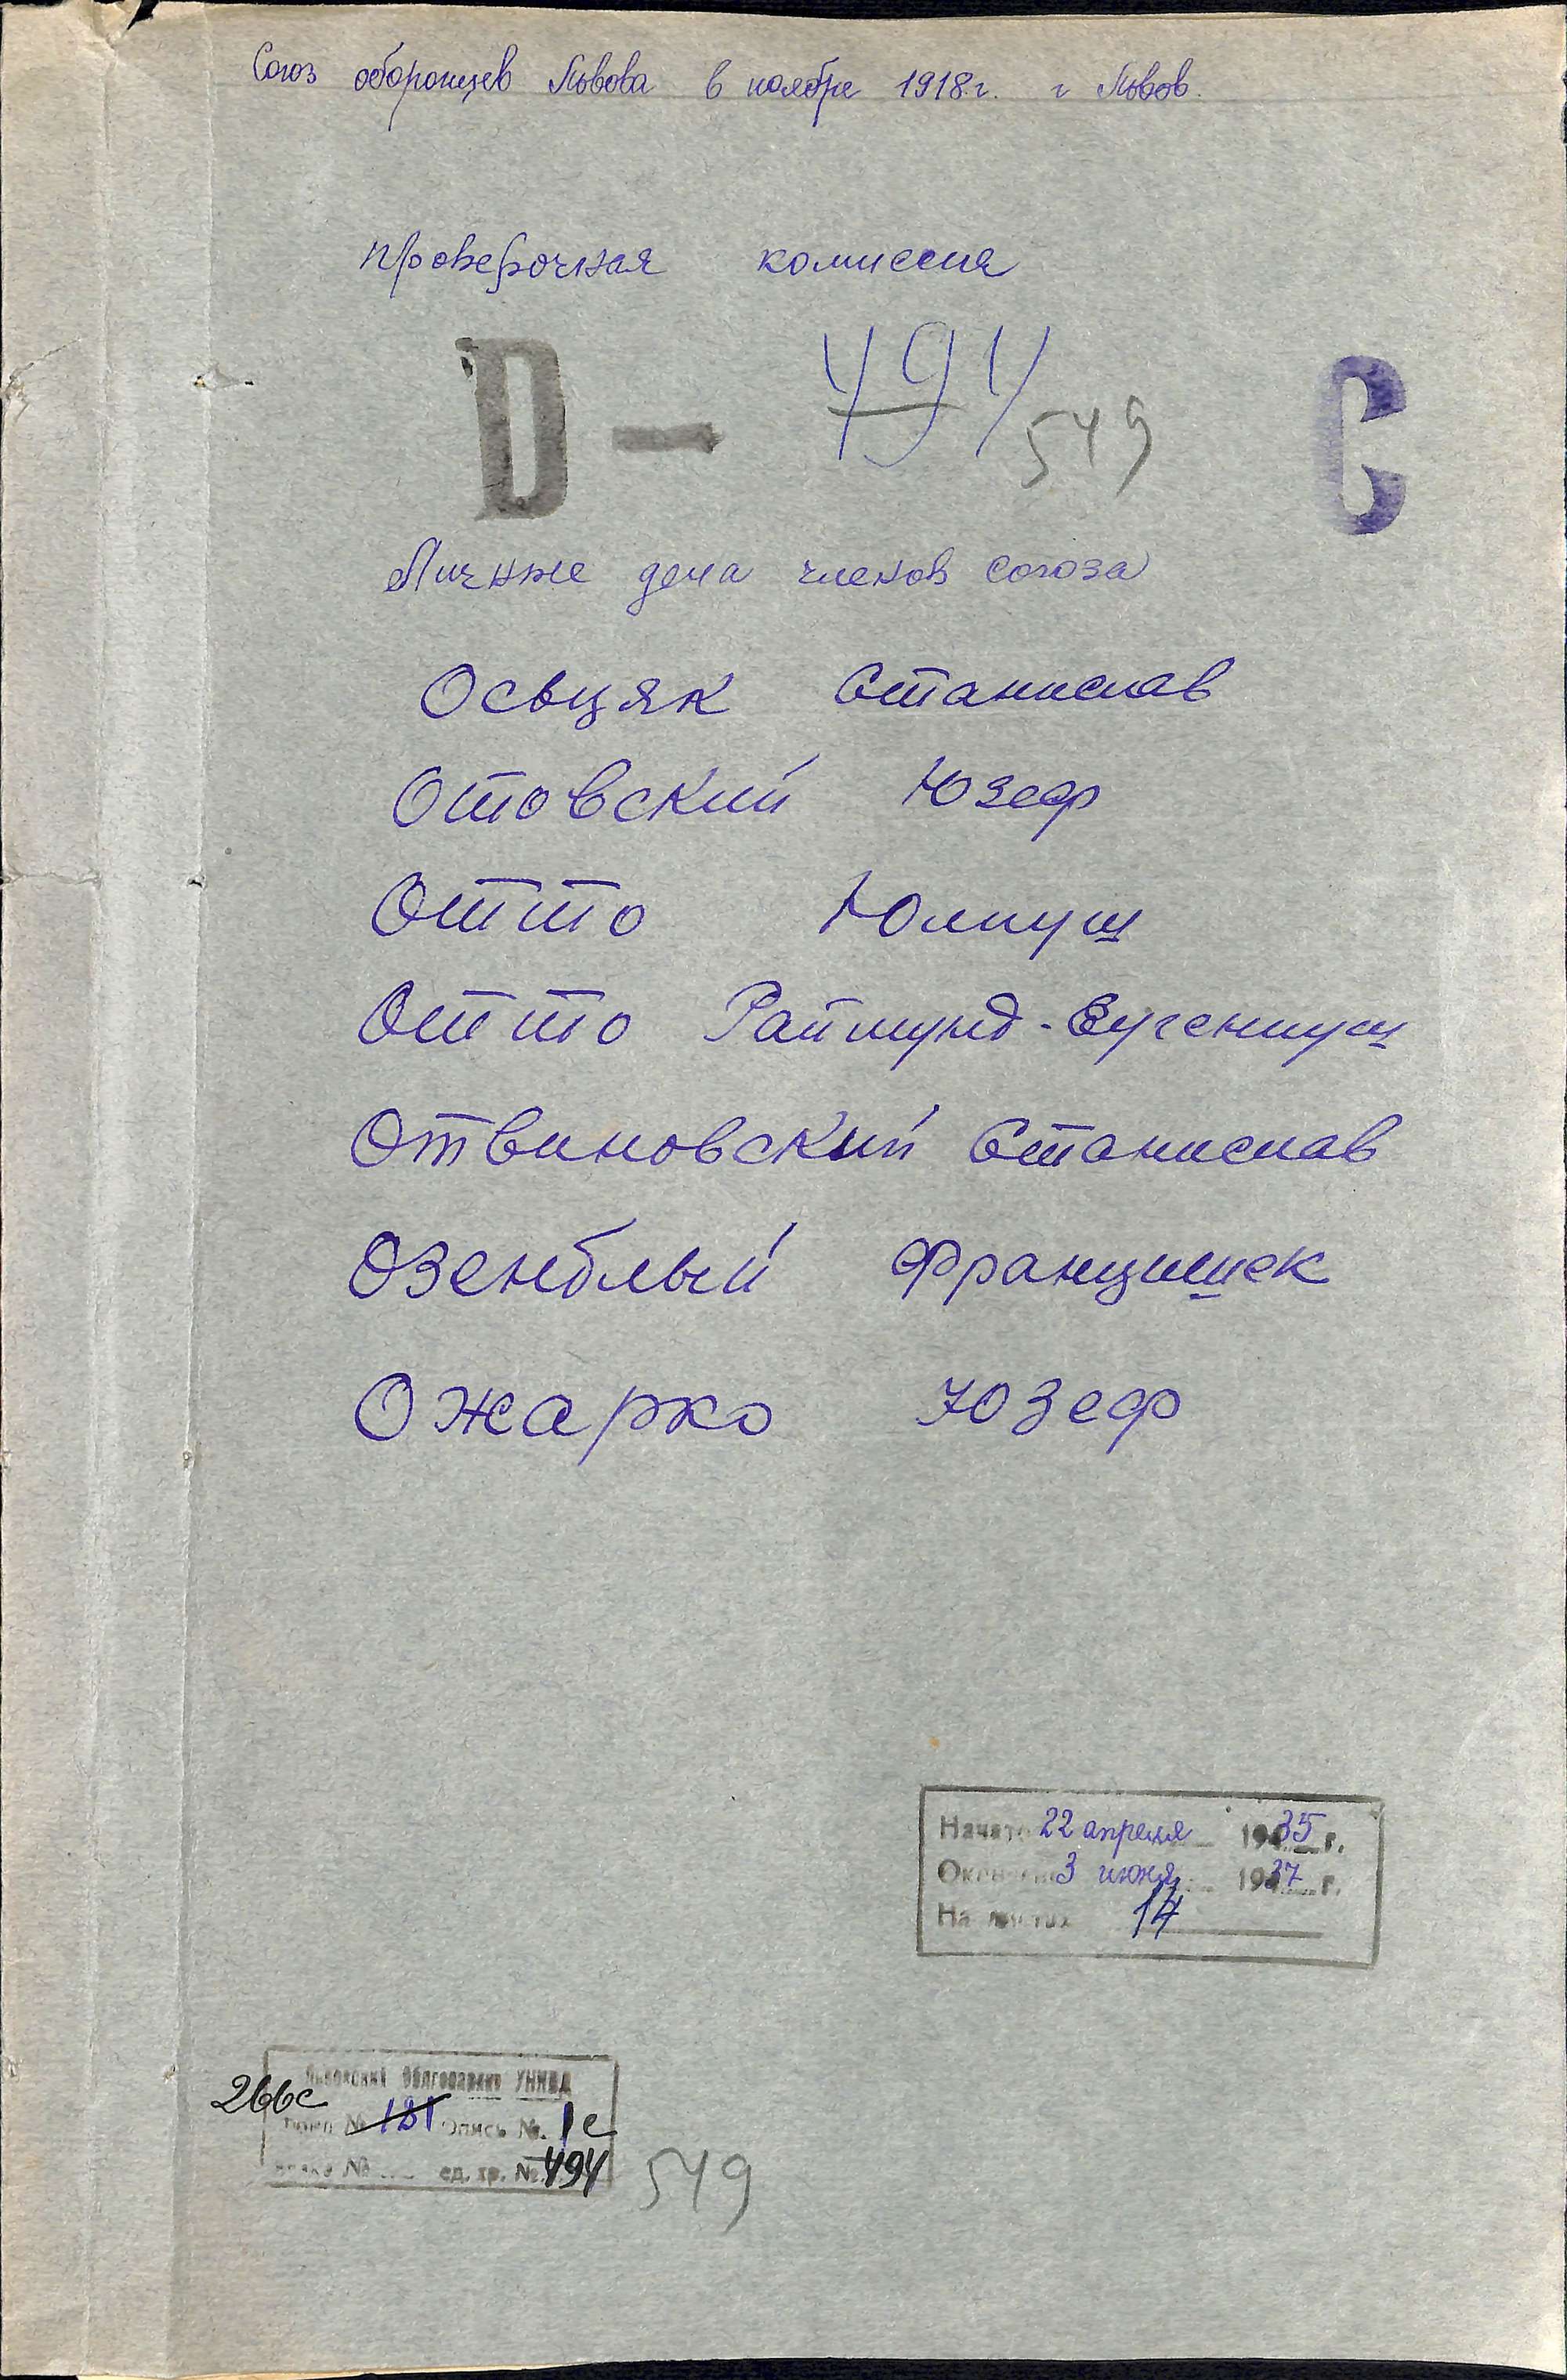 Союз оборонцев Львова в ноябре 1918 г. г Львов.
Проверочная комиссия
D - 494 C
549
Личные дела членов союза
Осьцяк Станислав
Отовский Юзеф
Отто Юлиуш
Отто Раймунд-Эугениуш
Отвиновский Станислав
Озенблый Францишек
Ожарко Юзеф
Начато 22 апреля 1935 г.
Окончено 3 июня 1937 г.
На листах 14
Львовский Облгосархив УНКВД
266с
№ 131 Опись № 1с
№ ед. хр. № 494
549